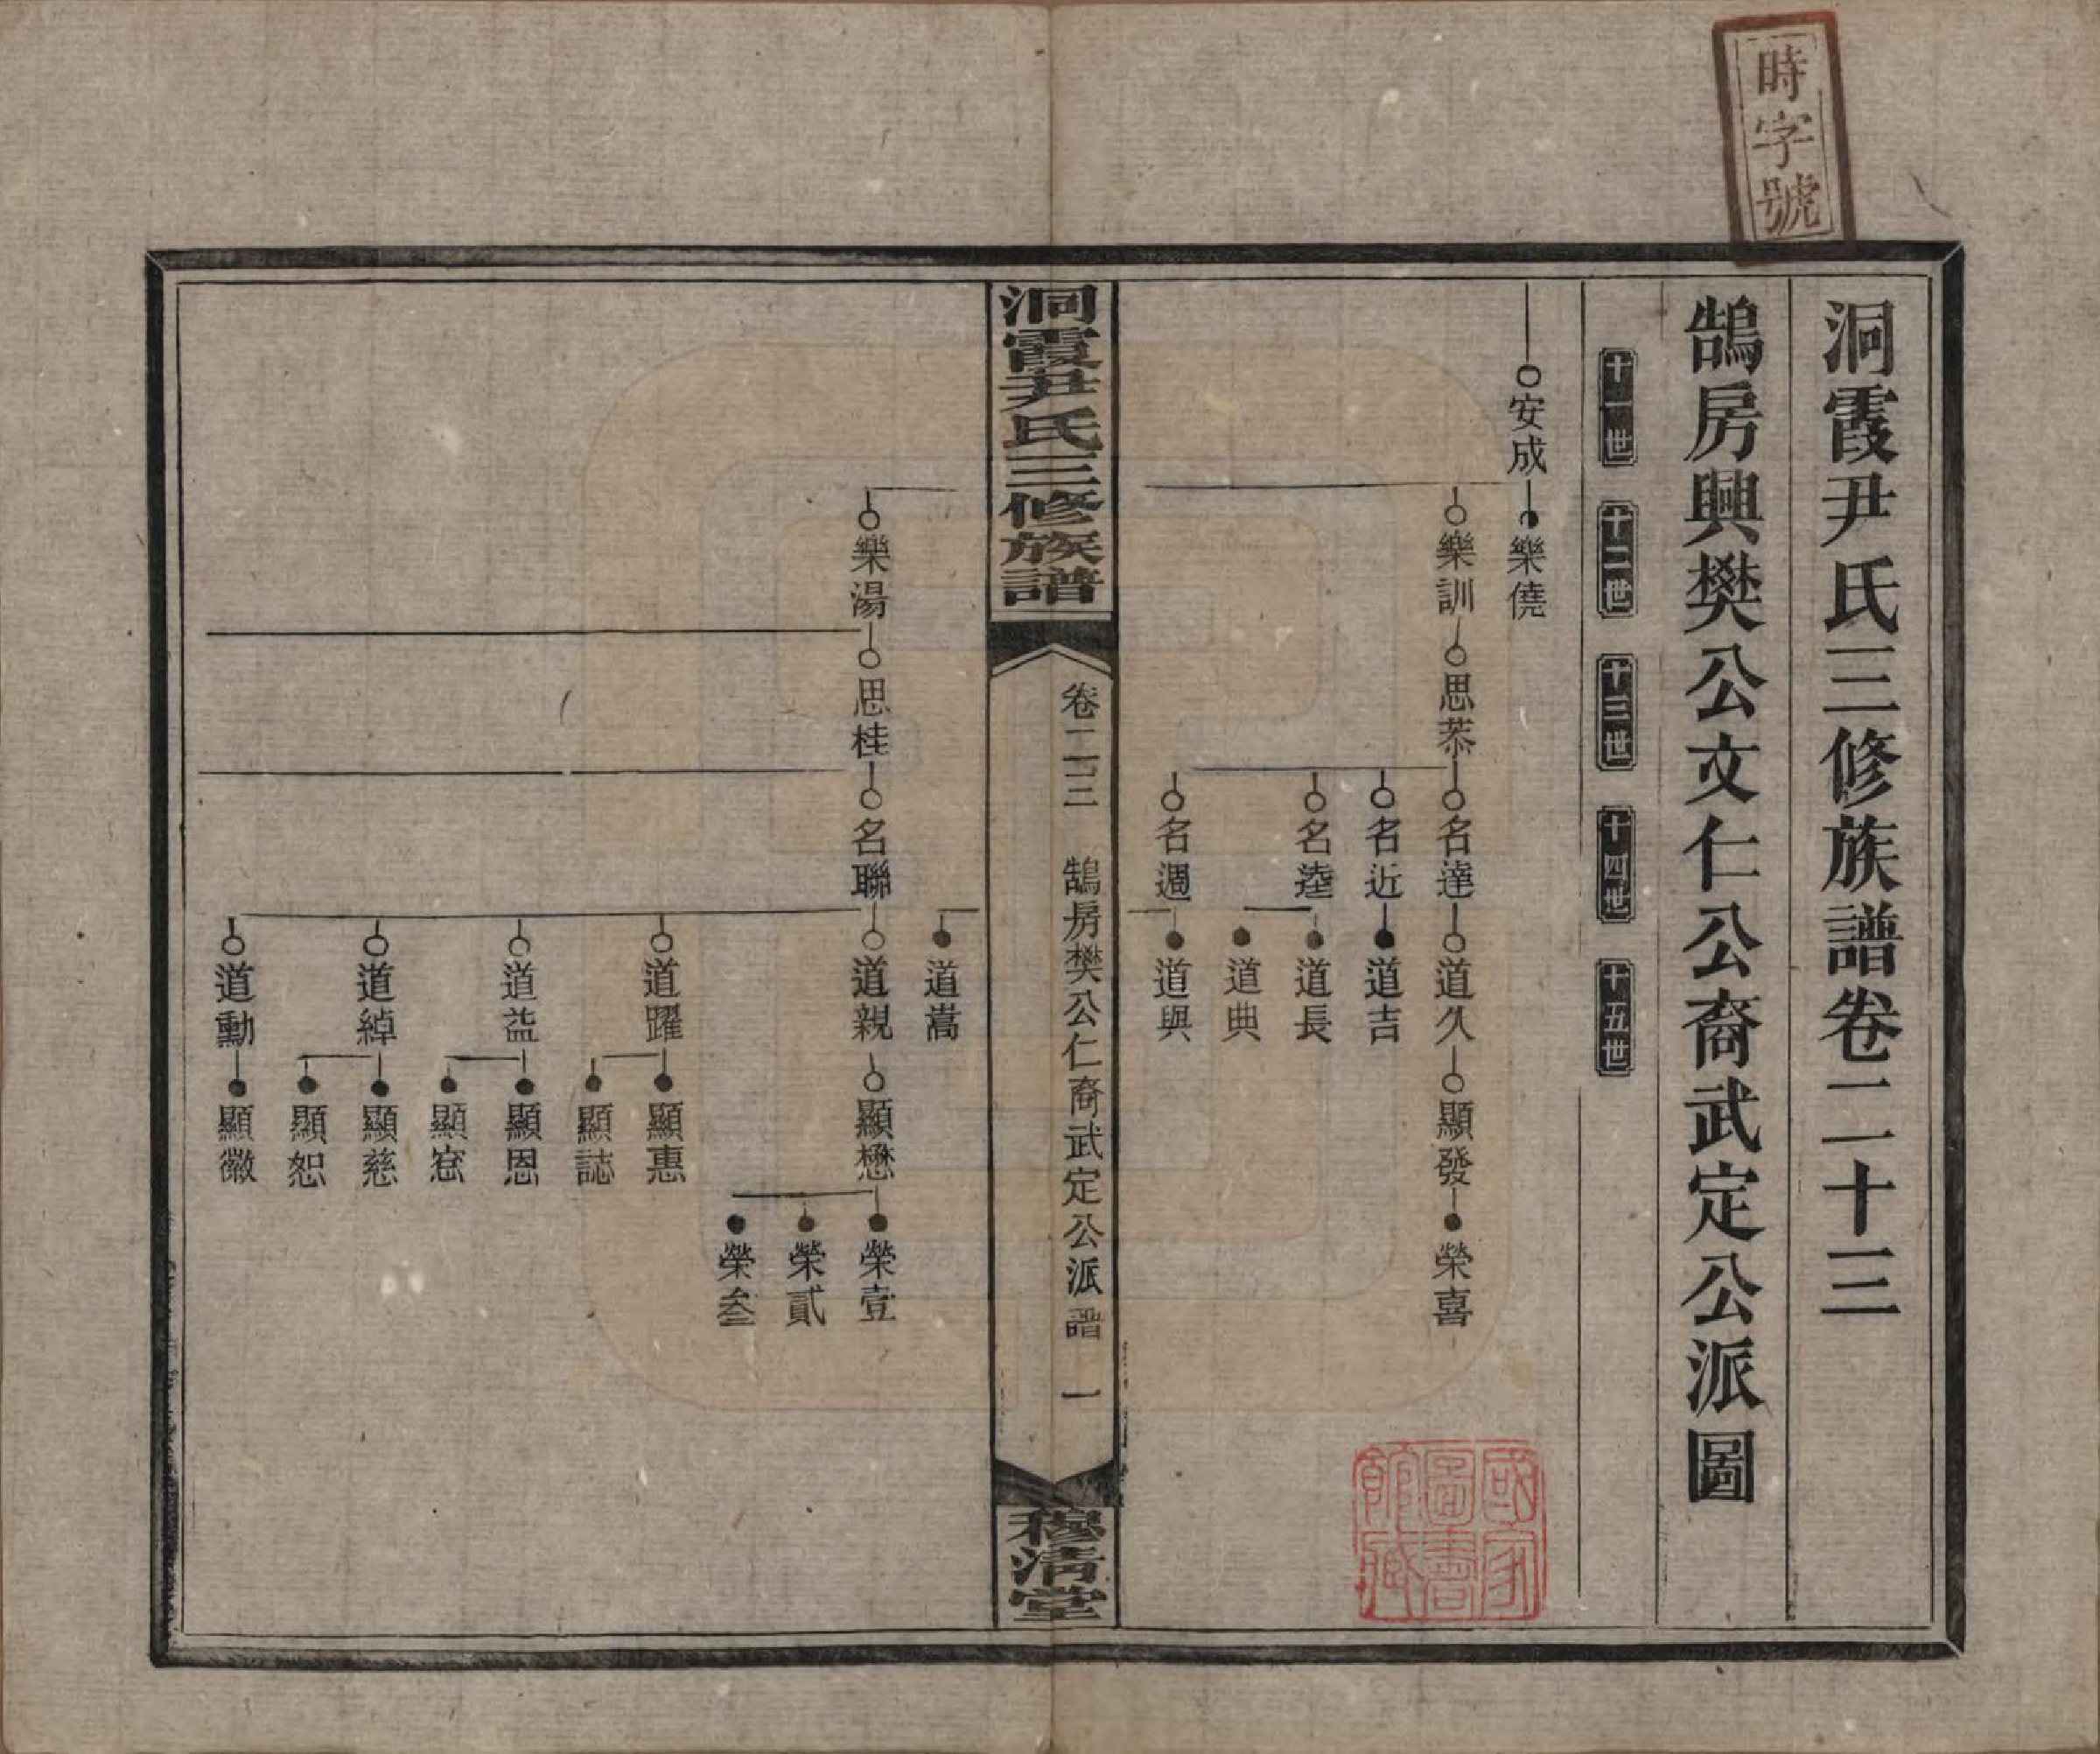 時字號
洞霞尹氏三修族譜卷二十三
鵠房興樊公文仁公裔武定公派圖
十一世 十二世 十三世 十四世 十五世
安成 樂僥
樂訓 思恭 名達 道久 顯發 榮喜
名近 道吉
名逵 道長
道典
名週 道與
洞霞尹氏三修族譜
卷二三 鵠房樊公仁裔武定公派譜 一
穆清堂
道嵩
樂湯 思桂 名聯 道親 顯懋 榮壹
榮貳
榮叁
道躍 顯惠
顯誌
道益 顯恩
顯窓
道綽 顯慈
顯恕
道勳 顯徽
國家圖書館藏